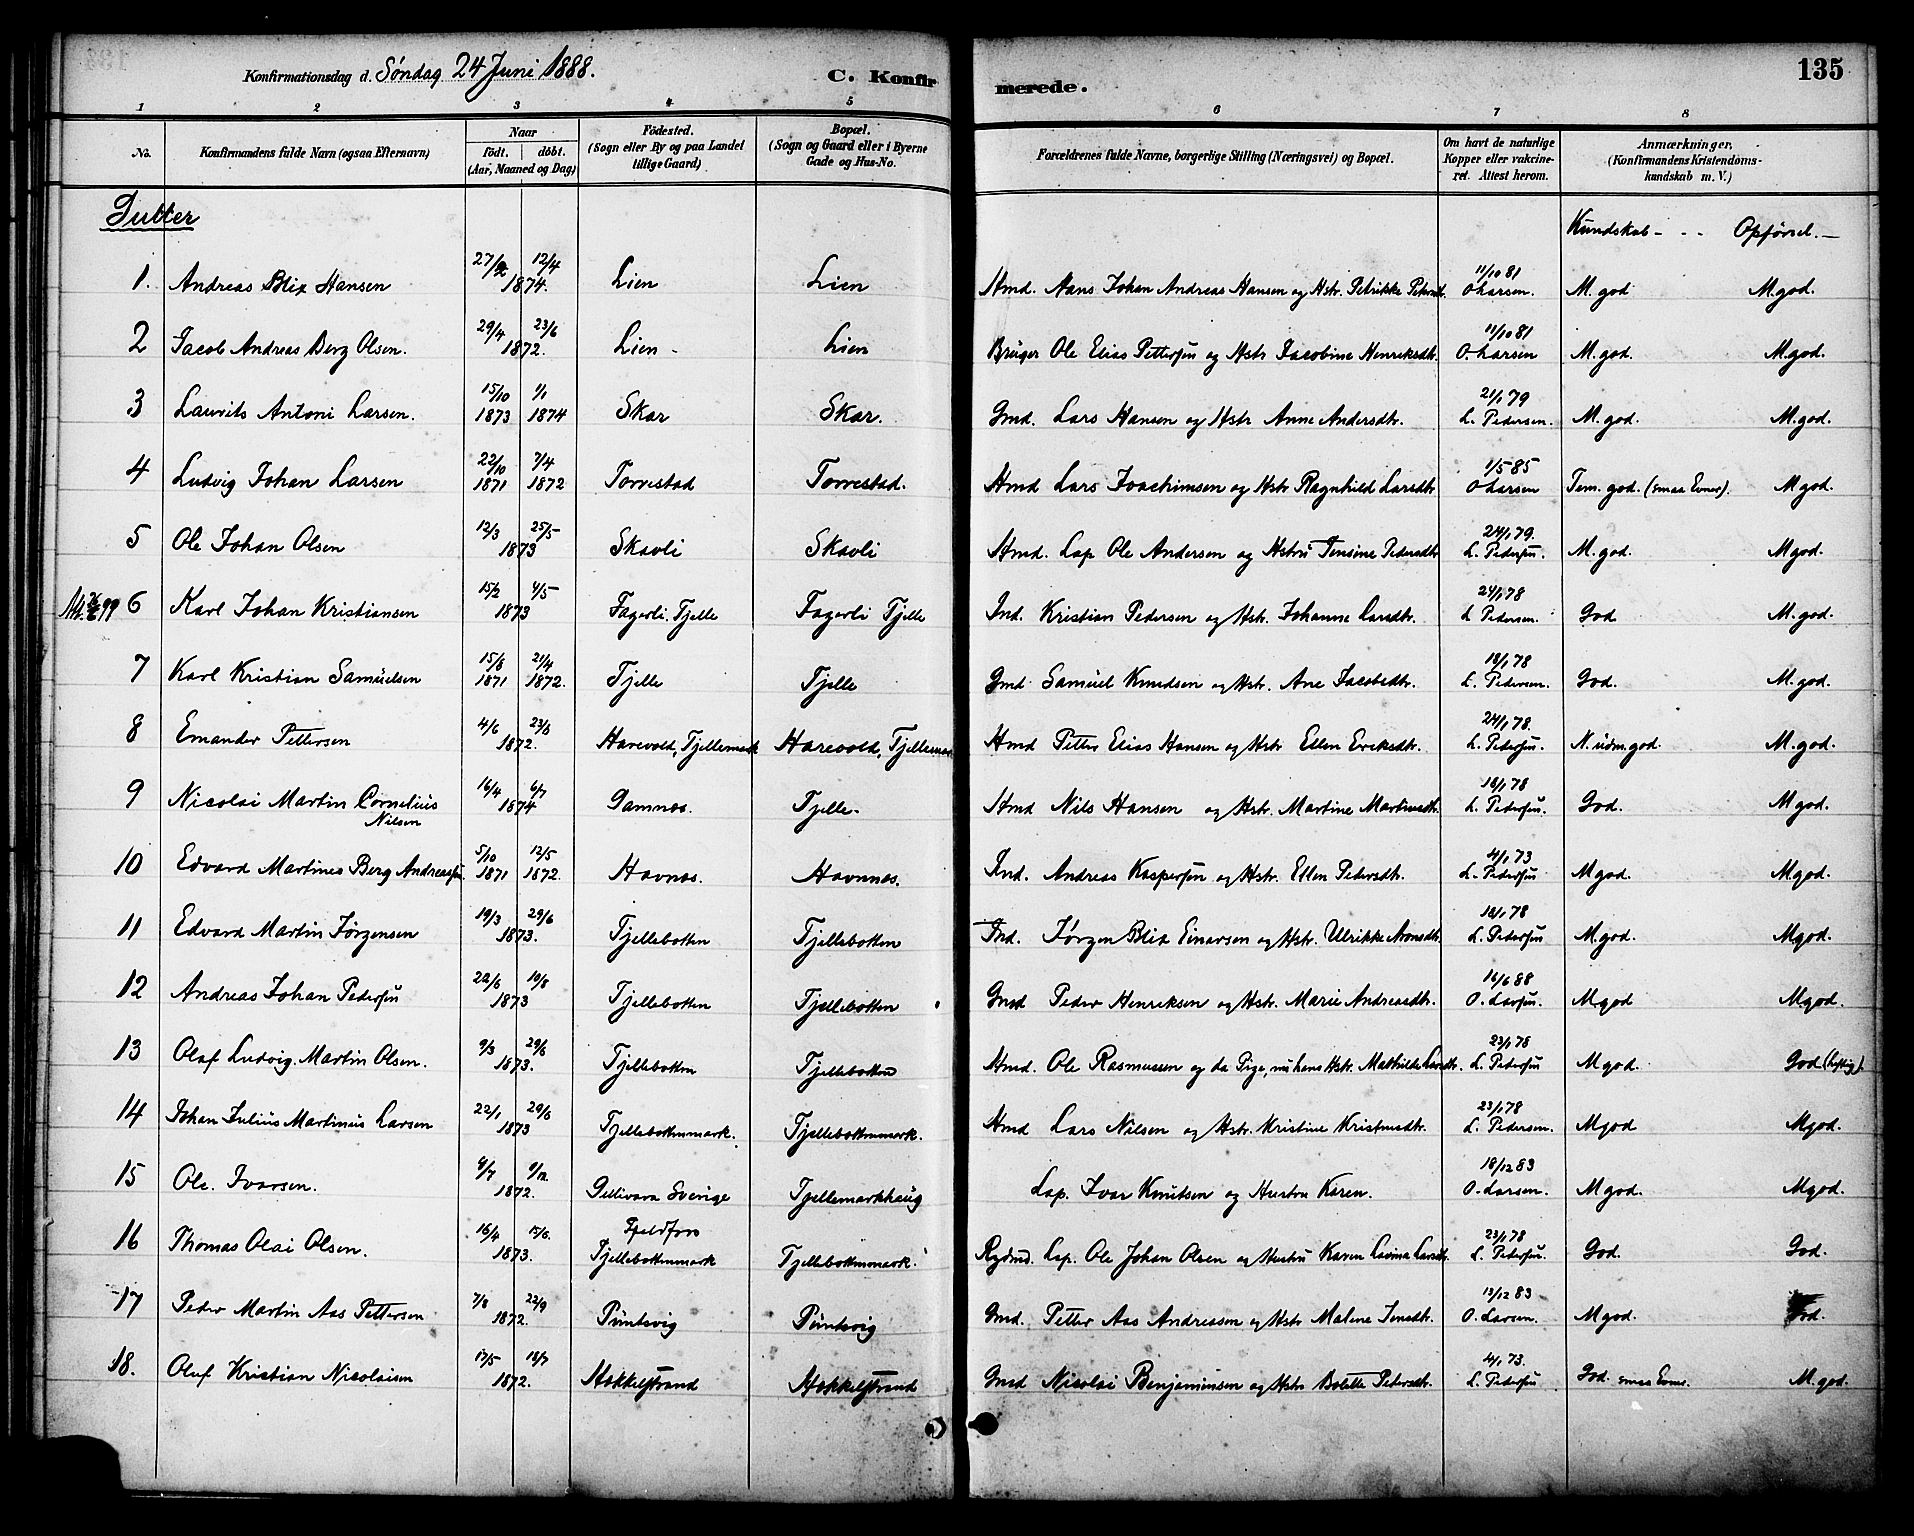 Konfirmationsdag d. Søndag 24 Juni 1888. C. Konfirmerede. 135
1 2 3 4 5 6 7 8
No. Konfirmandens fulde Navn (ogsaa Efternavn) Naar født. døbt. (Aar, Maaned og Dag) Födested. (Sogn eller By og paa Landet tillige Gaard) Bopæl. (Sogn og Gaard eller i Byerne Gade og Hus-No. Forældrenes fulde Navne, borgerlige Stilling (Næringsvei) og Bopæl. Om havt de naturlige Kopper eller vakcineret. Attest herom. Anmærkninger, (Konfirmandens Kristendomskundskab m. V.)
Gutter Kundskab - - - Opførsel. -
1. Andreas Blix Hansen 27/2 12/4 1874. Lien Lien Hmd. Hans Johan Andreas Hansen og Hstr. Petrikke Petersdt. 11/10 81 O Larsen. M. god M. god.
2 Jacob Andreas Berg Olsen. 29/4 23/6 1872. Lien - Lien Bruger Ole Elias Pettersen og Hstr Jacobine Henriksdtr. 11/10 81 O. Larsen M. god. M. god.
3 Lauvits Antoni Larsen. 15/10 1873 1/1 1874 Skar Skar. Gmd. Lars Hansen og Hstr Anne Andersdtr. 21/1 79 L. Pedersen. M. god. M. god.
4 Ludvig Johan Larsen 22/10 1871 7/4 1872 Torrestad Torrestad. Hmd Lars Joachimsen og Hstr Ragnhild Larsdtr 1/5 85 O Larsen Tem. god. (smaa Evner). M god.
5 Ole Johan Olsen 12/3 25/5 1873 Skavli Skavli Hmd. Lap Ole Andersen og Hstru Jensine Pedersdtr 24/1 79. L. Pedersen. M. god. M god.
6 Karl Johan Kristiansen 15/2 4/5 1873 Fagerli. Tjelle Fagerli Tjelle Ind. Kristian Pedersen og Hstr. Johanne Larsdtr. 24/1 78 L Pedersen. God M. god.
7 Karl Kristian Samuelsen 15/8 1871 21/4 1872. Tjelle Tjelle Gmd Samuel Knudsen og Hstr. Ane Jacobsdtr. 18/1 78 L. Pedersen. God. M. god.
8 Emander Pettersen 4/6 23/8 1872. Harevold, Tjellemark Harevold, Tjellemark Hmd Petter Elias Hansen og Hstr Ellen Eriksdtr. 24/1 78. L. Pedersen. N. udm. god. M. god.
9 Nicolai Martin Cornelius Nilsen 16/4 6/7 1874 Gamnæs. Tjelle. Hmd Nils Hansen og Hstr. Martine Martinsdtr. 18/1 78 L. Pedersen. God. M god.
10 Edvard Martines Berg Andreassen. 5/10 1871 12/5 1872. Havnæs. Havnnæs. Ind. Andreas Kaspersen og Hstr. Ellen Pedersdtr. 4/1 73 L. Pedersen M god. M god.
11 Edvard Martin Jørgensen 19/3 29/6 1873. Tjellebotten Tjellebotten Ind. Jørgen Blix Einarsen og Hstr. Ulrikke Aronsdtr. 18/1 78 L. Pedersen M. god. M god.
12 Andreas Johan Pedersen 22/6 10/8 1873 Tjellebotten Tjellebotten Gmd Peder Henriksen og Hstr. Marie Andreasdtr. 16/6 88 O. Larsen. M god M god.
13 Olaf Ludvig. Martin Olsen. 9/3 29/6 1873. Tjellebotten Tjellebotten Hmd. Ole Rasmussen og da Pige, nu hans Hstr. Mathilde Larsdtr. 23/1 78 L. Pedersen M god. God (lystig).
14 Johan Julius Martinus Larsen 22/1 29/6 1873 Tjellebottenmark. Tjellebottenmark. Hmd Lars Nilsen og Hstr. Kristine Kristensdtr. 23/1 78 L. Pedersen. M god M god.
15 Ole. Ivarsen. 1872. Gellivara Sverige Tjellemarkhaug Lap. Ivar Knutsen og Hustru Karen. 18/12 83 O. Larsen. M god. M god.
16 Thomas Olai Olsen. 16/4 15/6. 1873. Tjellebottenmark Tjellebottenmark. Rydmd. Lap. Ole Johan Olsen og Hustru Karen Lavina Larsdtr. 23/1 78 L. Pedersen. God. God.
17 Peder Martin Aas Pettersen 7/8 22/9 1872. Puntsvig Puntsvig Gmd. Petter Aas Andreasen og Hstr Malene Jensdtr. 13/12 83 O. Larsen. M god. God.
18. Oluf Kristian Nicolaisen 17/5 18/7 1872. Stokkelstrand Stokkelstrand Gmd Nicolai Benjaminsen og Hstr Bolette Petersdtr. 4/1 73. L. Pedersen God. smaa Evner. M. god.